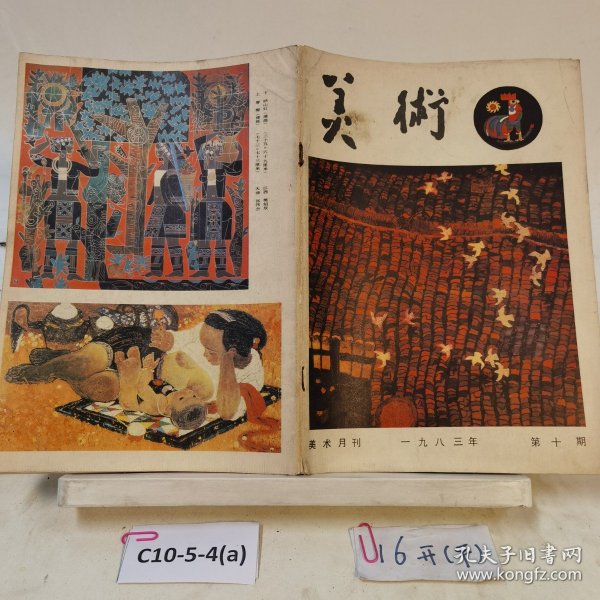 美術
美术月刊 一九八三年 第十期
C10-5-4(a)
16开(平)
孔夫子旧书网
www.kongfz.com